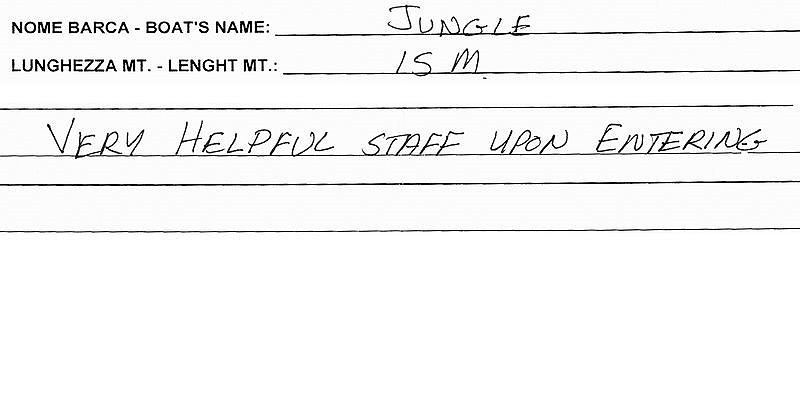 NOME BARCA - BOAT'S NAME: JUNGLE
LUNGHEZZA MT. - LENGHT MT.: 15 M.
VERY HELPFUL STAFF UPON ENTERING